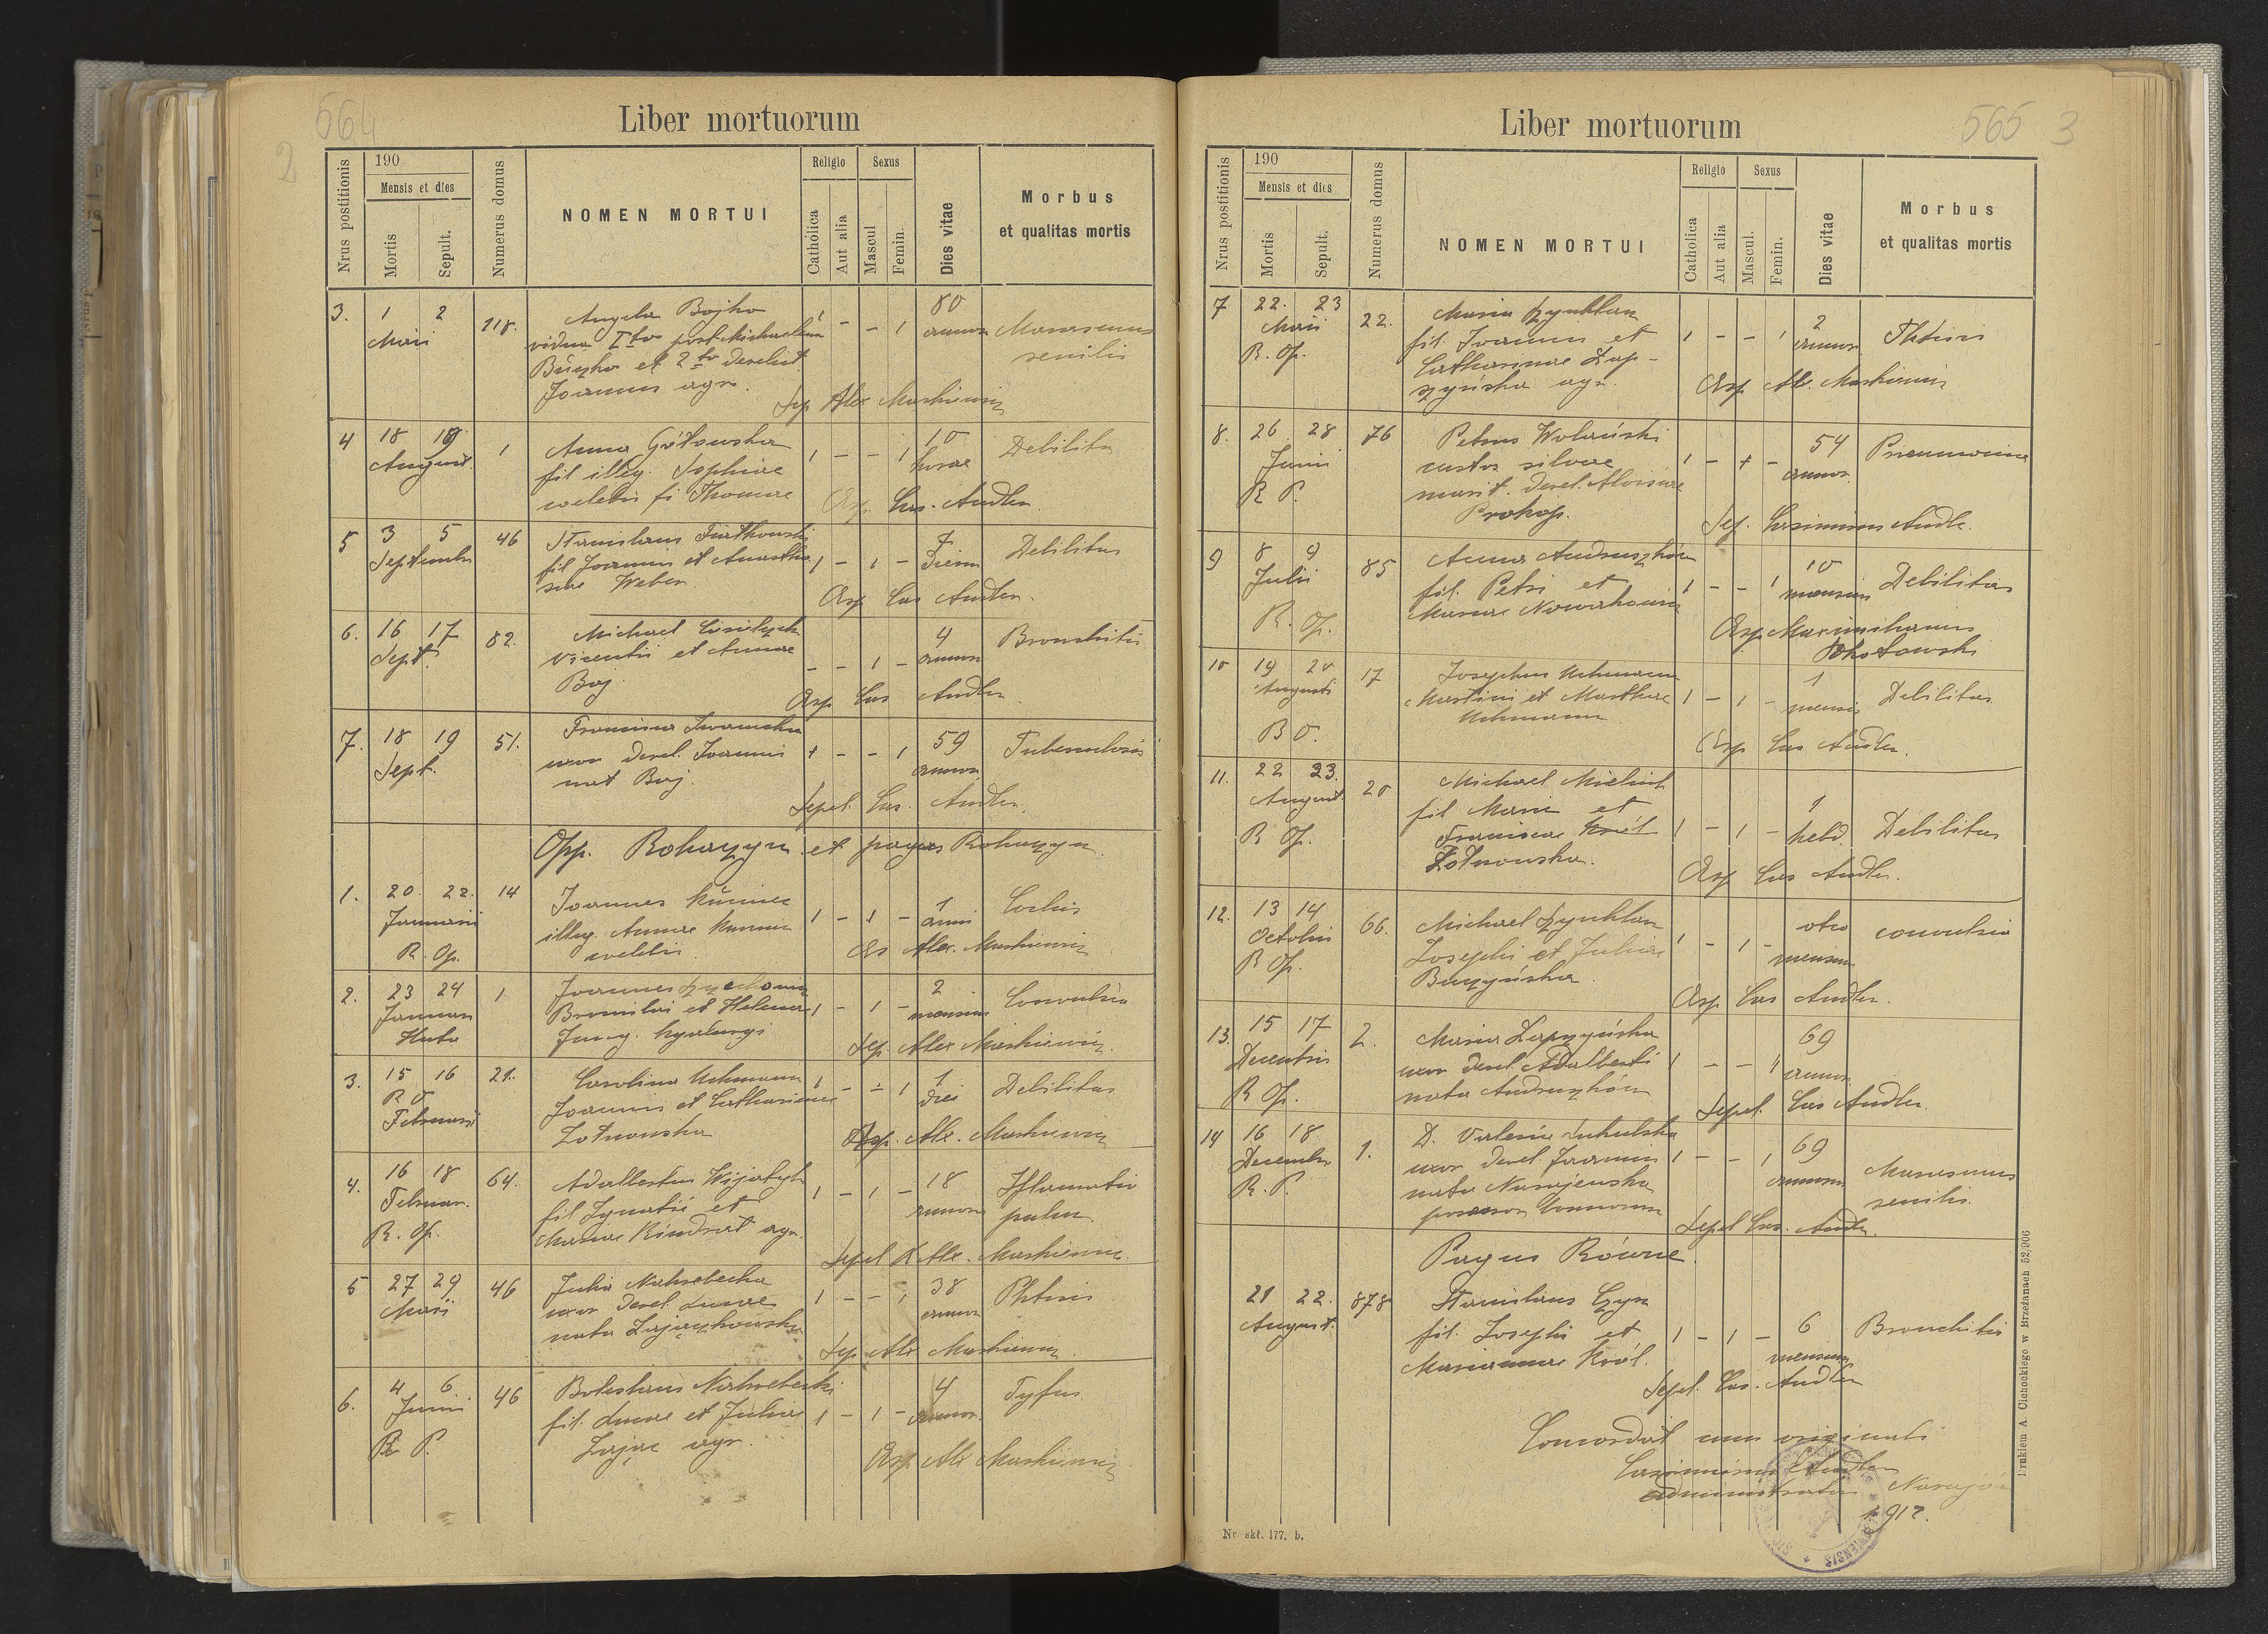 564
2
Liber mortuorum
Nrus postitionis
190
Mensis et dies
Mortis
Sepult.
Numerus domus
NOMEN MORTUI
Religio
Catholica
Aut alia
Sexus
Mascul
Femin.
Dies vitae
Morbus
et qualitas mortis
3. 1 2 118. Angela Bojko 1 - - 1 80
Maii vidua Ito post Michaelem annor Marasmus
et 2to derelict. senilis
Joannis agr.
Sep Alex Maskiewicz
4 18 19 1 Anna Gótowska 1 - - 1 10 Debilitas
August. fil illeg. Sophiae horae
caelebis fi Thomae
Asp. Cas. Andler
5 3 5 46 Stanislaus Fiutkowski 1 - 1 - 7 Debilitas
Septembr fil Joannis et Anasta dierum
siae Weber
Asp Cas Andler.
6. 16 17 82. Michael 4 Bronchitis
Sept. Vicentii et Annae - - 1 - annor
Baj
Asp Cas Andler
7. 18 19 51. Francisca Iwanicka 1 - - 1 59 Tuberculosis
Sept. uxor derel. Joannis annor
nat Baj.
Sepel. Cas. Andler.
Opp. Rohaczyn et pagus Rohaczyn.
1. 20 22. 14 Joannes 1 - 1 - 1
Januarii illeg. Annae anni
R. Op. caelebis
As Alex. Maskiewicz
2. 23 24 1 Joannes 2 Convulsio
Januar Bronislai et Helenae 1 - 1 - mensium
Huta Jung.
Sep. Alex Maskiewicz.
3. 15 16 21. Carolina Uchmann 1 - - 1 1 Debilitas
R O Joannis et Catharinae diei
Februarii Zotnowska
Asp. Alx. Maskiewicz
4. 16 18 64. Adalbertus 1 - 1 - 18 Iflamatio
Februar. fil Ignatii et annor pulm
R. Op. Mariae Kindrat agr.
Sepel X Alx. Maskiewicz.
5 27 29 46 Julia Nahrebecka 1 - - 1 38 Phtisis
Maii uxor derel Lucae annor
nata Zajączkowska
Sep. Alx Maskiewicz.
6. 4 6 46 Boleslaus Nahrebecki 4 Tyfus
Junii fil. Lucae et Juliae 1 - 1 - annor.
R P. Zając agr.
Asp Alx Maskiewicz
565 3
Liber mortuorum
Nrus postitionis
190
Mensis et dies
Mortis
Sepult.
Numerus domus
NOMEN MORTUI
Religio
Catholica
Aut alia
Sexus
Mascul.
Femin.
Dies vitae
Morbus
et qualitas mortis
7 22. 23 22. Maria 1 - - 1 2 Phtisis
Maii fil. Joannis et annor
R. Op. Catharinae Łap-
szyńska agr.
Asp Alx. Maskiewicz
8. 26 28 76 Petrus Wolański 54 Pneumonia
Junii custos silvae 1 - + - annor.
R P. marit. derel. Aloisiae
Prokop.
Sep. Casimirus Andle.
9 8 9 85 Anna Andruszków 10 Debilitas
Julii fil. Petri et 1 - - 1 mensium
R. Op. Mariae
Asp Maximilianus
10 19 20 17 Josephus Uchmann 1 Debilitas
Augusti Martini et Marthae 1 - 1 - mensis
R O. Uchmann
Asp Cas Andler.
11. 22 23. 20 Michael 1
August. fil Maria et 1 - 1 - hebd. Debilitas
R Op. Franciscae Król
Zotnowska.
Asp Cas Andler.
12. 13 14 66. Michael octo convulsio
Octobris Josephi et Juliae 1 - 1 - mensium
R Op.
Asp Cas Andler.
13. 15 17 2. Maria Łapszyńska 69
Decembris uxor derel Adalberti 1 - - 1 annor
R Op. nata Andruszków
Sepel. Cas Andler.
14 16 18 1. D. Valeria 69
Decembr uxor derel. Joannis 1 - - 1 annorum Marasmus
R. P. nata Narajewska senilis.
Sepel Cas. Andle.
Pagus Równe.
21 22. 878 Stanislaus
August. fil. Josephi et 1 - 1 - 6 Bronchitis
Mariannae Król. mensium
Sepel. Cas. Andler
Concordat cum originali
Casimirus Andler
administrator Narajów
1912.
Nr. skł. 177. b.
Drukiem A. Cichockiego w Brzeżanach 52.906